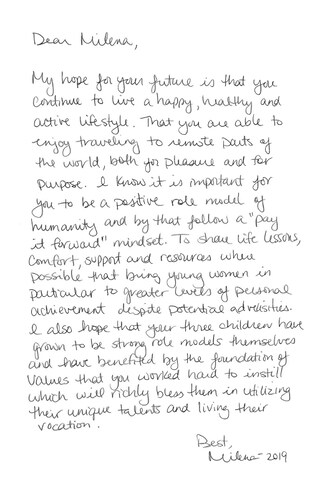 Dear Milena,
My hope for your future is that you
continue to live a happy, healthy and
active lifestyle. That you are able to
enjoy traveling to remote parts of
the world, both for pleasure and for
purpose. I know it is important for
you to be a positive role model of
humanity and by that follow a "pay
it forward" mindset. To share life lessons,
comfort, support and resources when
possible that bring young women in
particular to greater levels of personal
achievement despite potential adversities.
I also hope that your three children have
grown to be strong role models themselves
and have benefited by the foundation of
values that you worked hard to instill
which will richly bless them in utilizing
their unique talents and living their
vocation.
Best,
Milena 2019